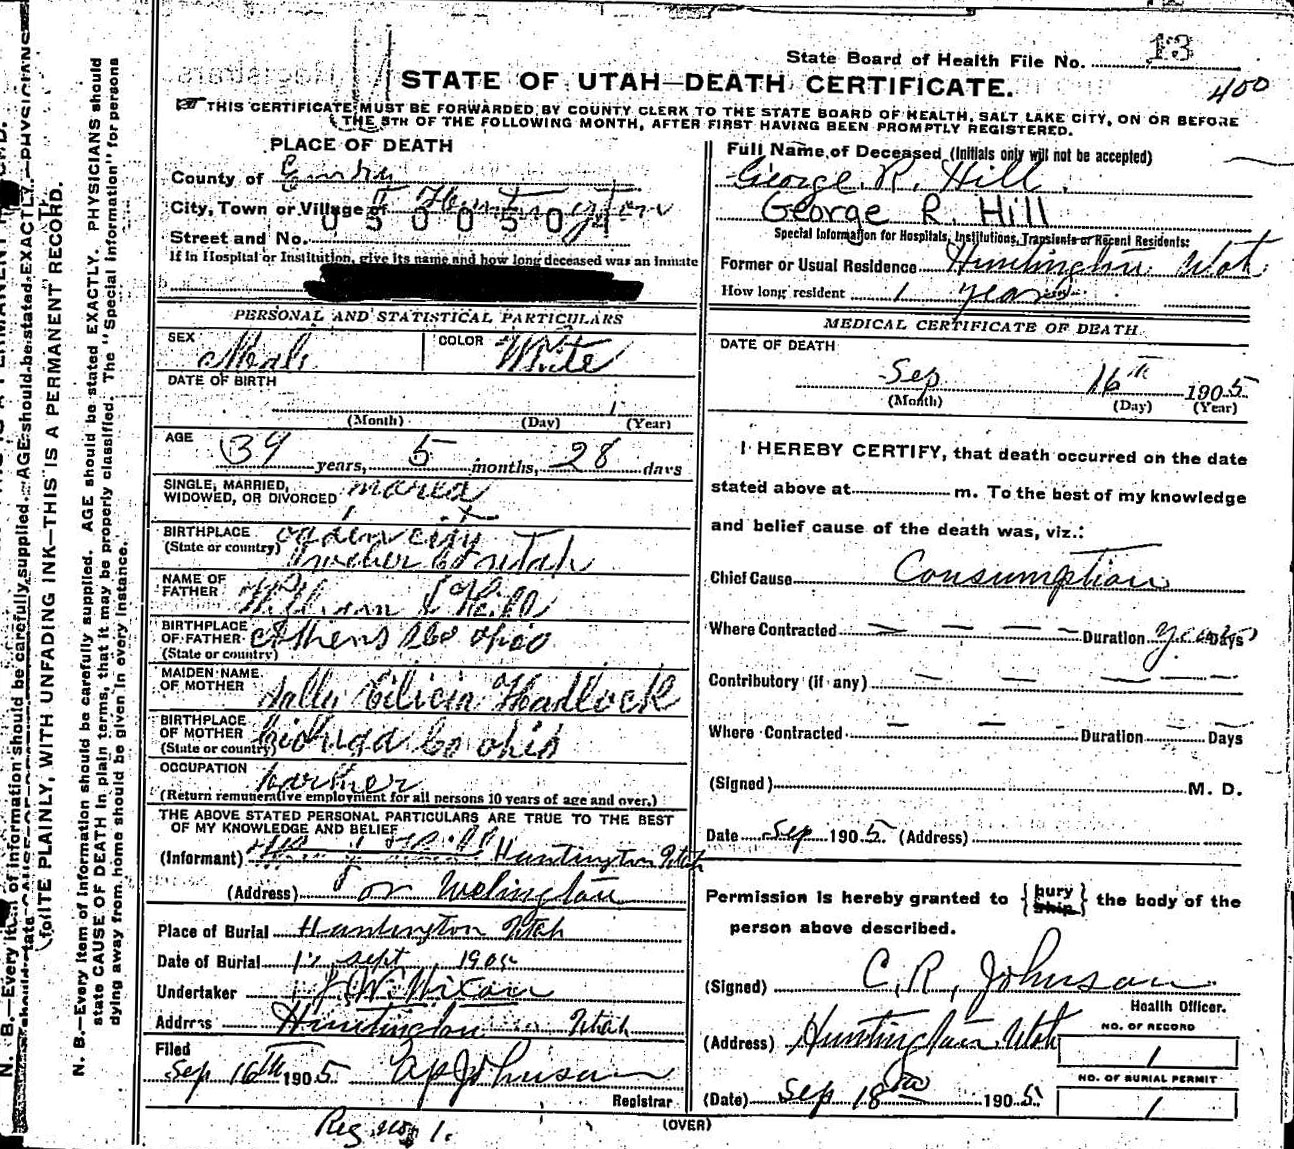 State Board of Health File No. 13
400
STATE OF UTAH—DEATH CERTIFICATE.
THIS CERTIFICATE MUST BE FORWARDED BY COUNTY CLERK TO THE STATE BOARD OF HEALTH, SALT LAKE CITY, ON OR BEFORE
THE 5TH OF THE FOLLOWING MONTH, AFTER FIRST HAVING BEEN PROMPTLY REGISTERED.
PLACE OF DEATH
County of Emery
City, Town or Village of Huntington
0500504
Street and No.
If in Hospital or Institution, give its name and how long deceased was an inmate
PERSONAL AND STATISTICAL PARTICULARS
SEX Male COLOR White
DATE OF BIRTH
(Month) (Day) (Year)
AGE 39 years, 5 months, 28 days
SINGLE, MARRIED,
WIDOWED, OR DIVORCED maried
BIRTHPLACE ogden city
(State or country) Weber Co utah
NAME OF
FATHER William Hill
BIRTHPLACE
OF FATHER Athens Co ohio
(State or country)
MAIDEN NAME
OF MOTHER Sally Hadlock
BIRTHPLACE
OF MOTHER Co ohio
(State or country)
OCCUPATION Farmer
(Return remunerative employment for all persons 10 years of age and over.)
THE ABOVE STATED PERSONAL PARTICULARS ARE TRUE TO THE BEST
OF MY KNOWLEDGE AND BELIEF
(Informant) Huntington Utah
(Address) or Welington
Place of Burial Huntington Utah
Date of Burial sept 1905
Undertaker Nixon
Address Huntington Utah
Filed
Sep 16th 1905 Johnson
Registrar
Reg no, 1.
Full Name of Deceased (Initials only will not be accepted)
George R. Hill
George R. Hill
Special Information for Hospitals, Institutions, Transients or Recent Residents:
Former or Usual Residence Huntington Utah
How long resident 1 year
MEDICAL CERTIFICATE OF DEATH
DATE OF DEATH
Sep 16th 1905
(Month) (Day) (Year)
I HEREBY CERTIFY, that death occurred on the date
stated above at m. To the best of my knowledge
and belief cause of the death was, viz.:
Chief Cause Consumption
Where Contracted Duration years Days
Contributory (if any)
Where Contracted Duration Days
(Signed) M. D.
Date Sep 1905 (Address)
Permission is hereby granted to {bury ship} the body of the
person above described.
(Signed) C. R. Johnson
Health Officer.
(Address) Huntington Utah
NO. OF RECORD
1
(Date) Sep 18 1905
NO. OF BURIAL PERMIT
1
(OVER)
WRITE PLAINLY, WITH UNFADING INK—THIS IS A PERMANENT RECORD.
N. B.—Every item of information should be carefully supplied. AGE should be stated EXACTLY. PHYSICIANS should
state CAUSE OF DEATH in plain terms, that it may be properly classified. The "Special Information" for persons
dying away from home should be given in every instance.